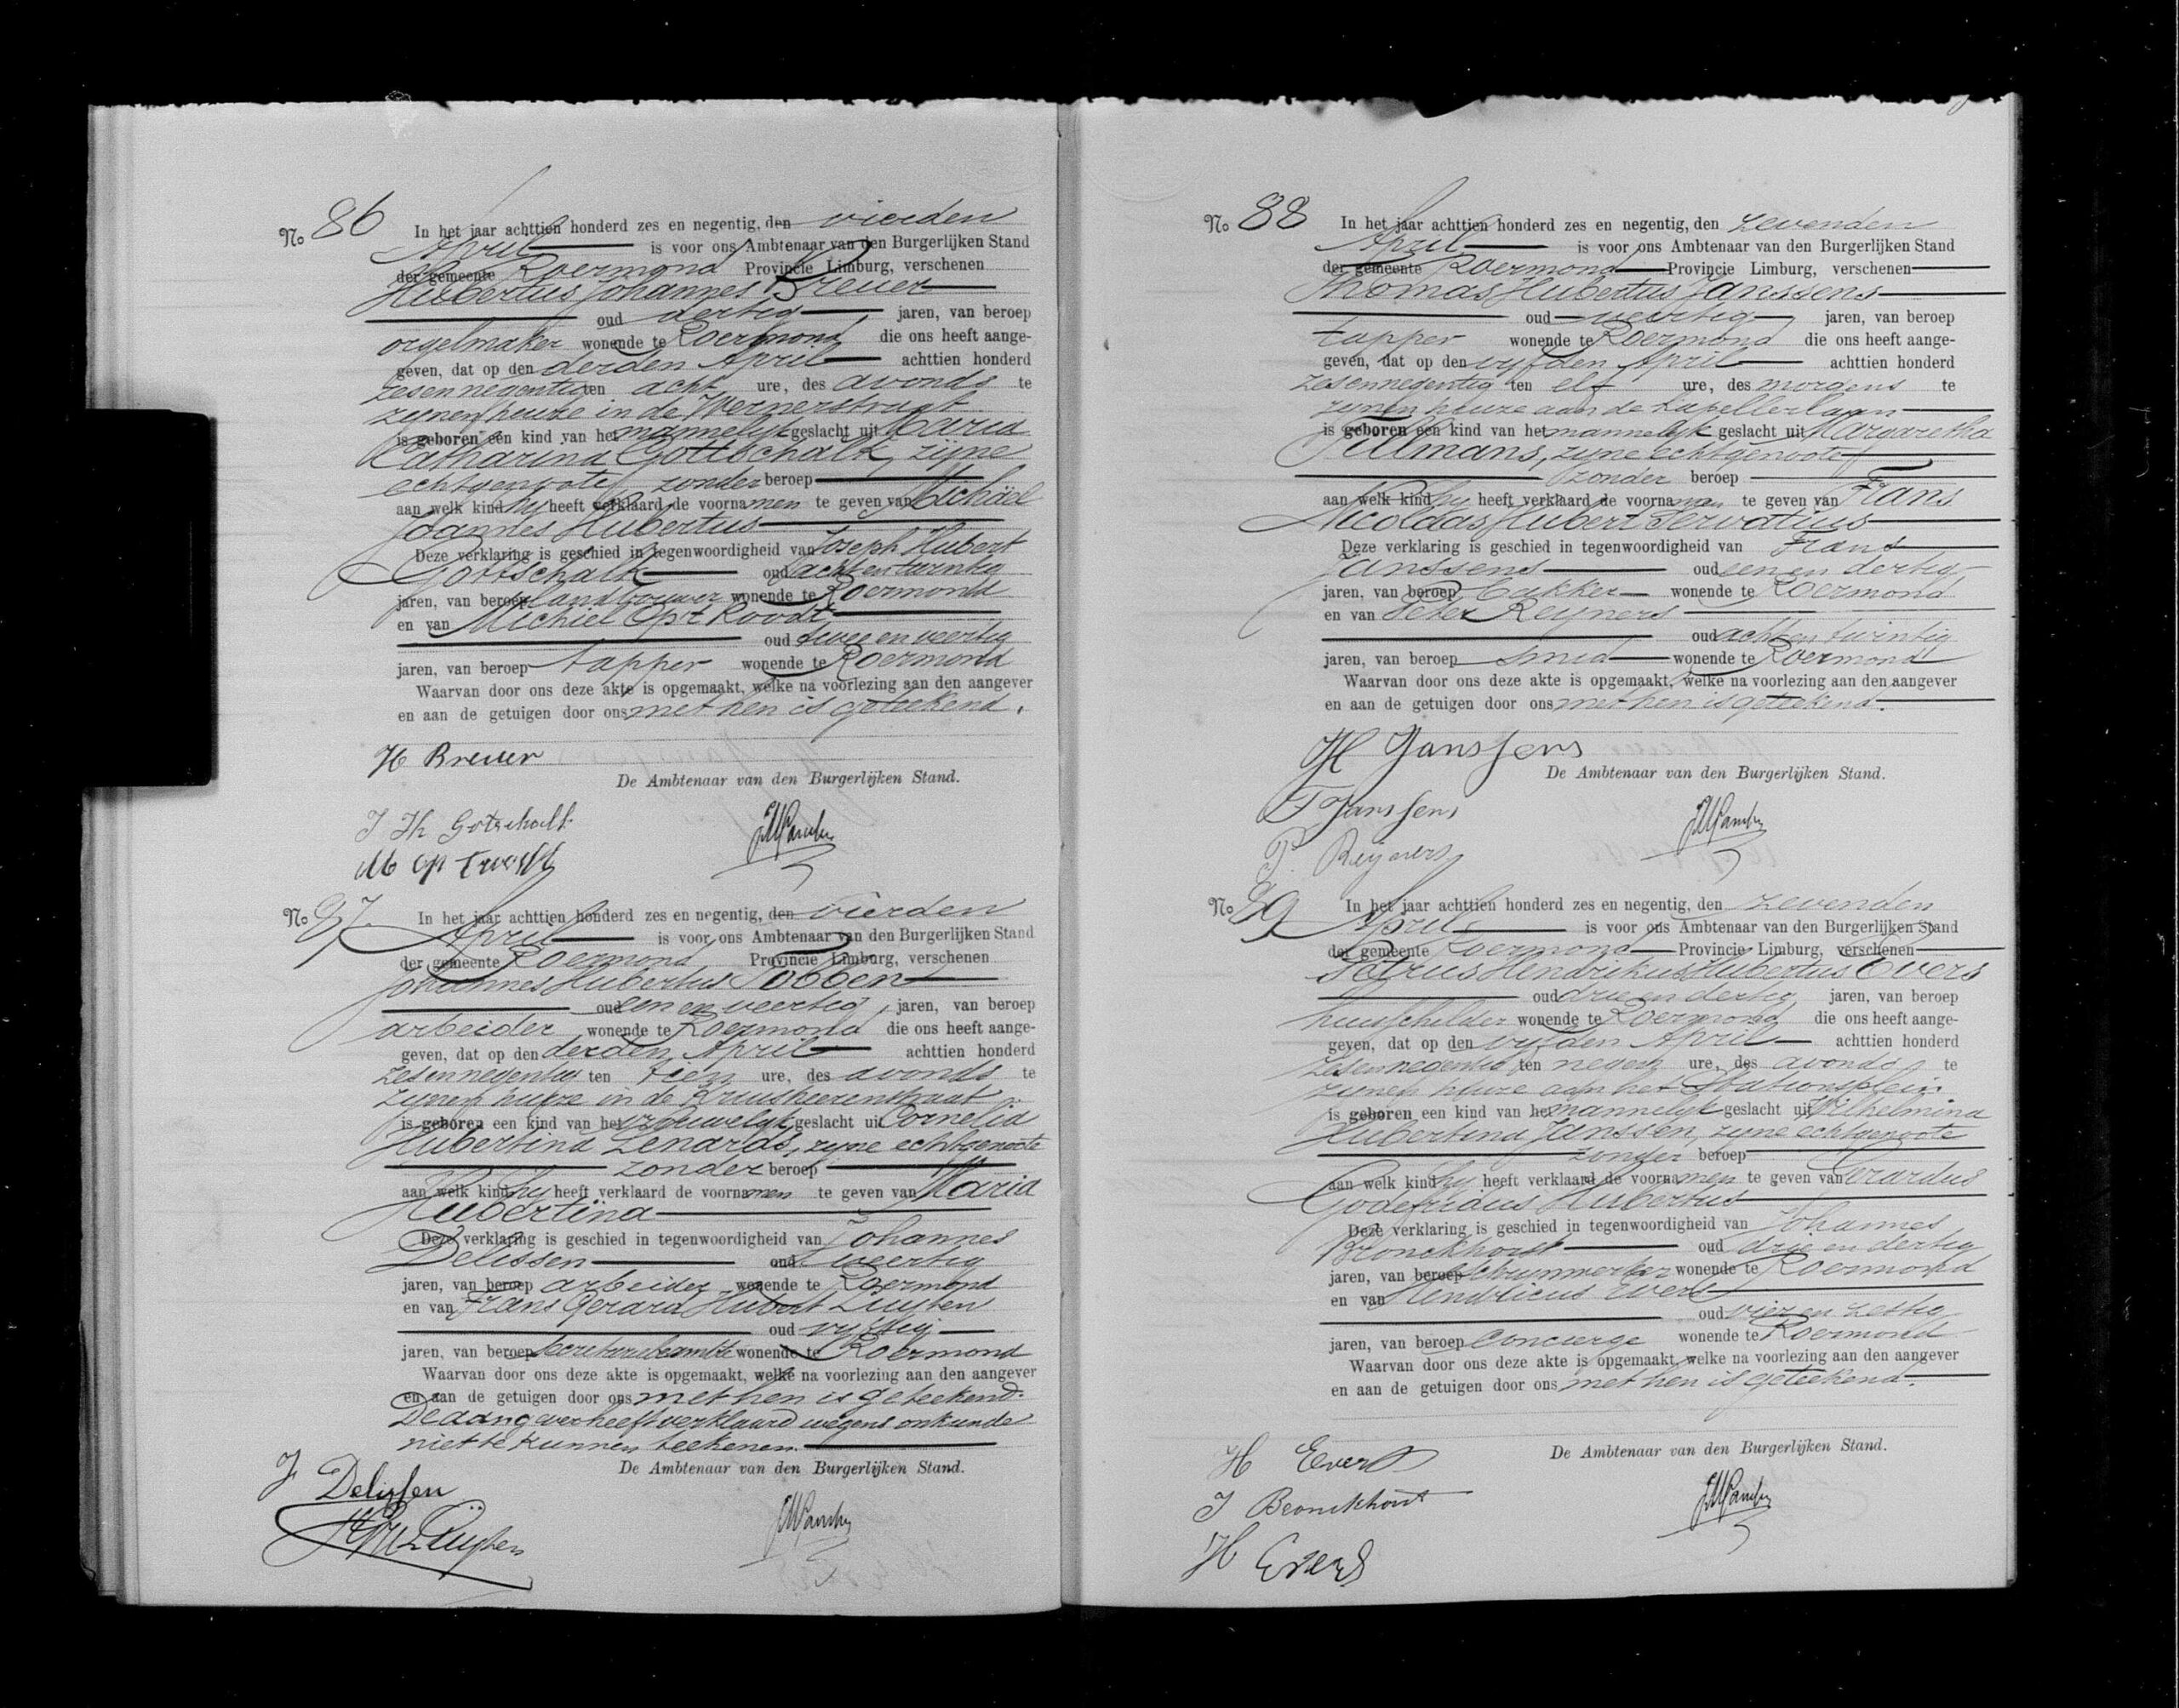 No 86 In het jaar achttien honderd zes en negentig, den vierden
April is voor ons Ambtenaar van den Burgerlijken Stand
der gemeente Roermond Provincie Limburg, verschenen
Hubertus Johannes Breuer
oud dertig jaren, van beroep
orgelmaker wonende te Roermond die ons heeft aange-
geven, dat op den derden April achttien honderd
zesennegentig ten acht ure, des avonds te
zynen huize in de Wernerstraat
is geboren een kind van het mannelyk geslacht uit Maria
Catharina Gottschalk, zyne
echtgenoote zonder beroep
aan welk kind hy heeft verklaard de voornamen te geven van Michäel
Joannes Hubertus
Deze verklaring is geschied in tegenwoordigheid van Joseph Hubert
Gottschalk oud acht en twintig
jaren, van beroep landbouwer wonende te Roermond
en van Michiel Op't Roodt
oud twee en veertig
jaren, van beroep tapper wonende te Roermond
Waarvan door ons deze akte is opgemaakt, welke na voorlezing aan den aangever
en aan de getuigen door ons met hen is geteekend.
H Breuer
De Ambtenaar van den Burgerlijken Stand.
J Th Gotschalk
M op t roodt
No 87 In het jaar achttien honderd zes en negentig, den vierden
April is voor ons Ambtenaar van den Burgerlijken Stand
der gemeente Roermond Provincie Limburg, verschenen
Johannes Hubertus Tobben
oud een en veertig jaren, van beroep
arbeider wonende te Roermond die ons heeft aange-
geven, dat op den derden April achttien honderd
zesennegentig ten tien ure, des avonds te
zynen huize in de Kruisheerenstraat
is geboren een kind van het vrouwelyk geslacht uit Cornelia
Hubertina Lenards, zyne echtgenoote
zonder beroep
aan welk kind hy heeft verklaard de voornamen te geven van Maria
Hubertina
Deze verklaring is geschied in tegenwoordigheid van Johannes
Delissen oud veertig
jaren, van beroep arbeider wonende te Roermond
en van Frans Gerard Hubert Luyten
oud vyftig
jaren, van beroep wonende te Roermond
Waarvan door ons deze akte is opgemaakt, welke na voorlezing aan den aangever
en aan de getuigen door ons met hen is geteekend.
De aangever heeft verklaard wegens onkunde
niet te kunnen teekenen.
De Ambtenaar van den Burgerlijken Stand.
J Delissen
Luyten
No 88 In het jaar achttien honderd zes en negentig, den zevenden
April is voor ons Ambtenaar van den Burgerlijken Stand
der gemeente Roermond Provincie Limburg, verschenen
Thomas Hubertus Janssens
oud veertig jaren, van beroep
tapper wonende te Roermond die ons heeft aange-
geven, dat op den vyfden April achttien honderd
zesennegentig ten elf ure, des morgens te
zynen huize aan de Kapellerlaan
is geboren een kind van het mannelyk geslacht uit Margaretha
Tillmans, zyne echtgenoote
zonder beroep
aan welk kind hy heeft verklaard de voornamen te geven van Frans
Nicolaas Hubert Servatius
Deze verklaring is geschied in tegenwoordigheid van Frans
Janssens oud een en dertig
jaren, van beroep bakker wonende te Roermond
en van Peter Reyners
oud acht en twintig
jaren, van beroep smid wonende te Roermond
Waarvan door ons deze akte is opgemaakt, welke na voorlezing aan den aangever
en aan de getuigen door ons met hen is geteekend.
H Janssens
De Ambtenaar van den Burgerlijken Stand.
F Janssens
P. Reijners
No 89 In het jaar achttien honderd zes en negentig, den zevenden
April is voor ons Ambtenaar van den Burgerlijken Stand
der gemeente Roermond Provincie Limburg, verschenen
Petrus Hendrikus Hubertus Evers
oud drie en dertig jaren, van beroep
huisschilder wonende te Roermond die ons heeft aange-
geven, dat op den vyfden April achttien honderd
zesennegentig ten negen ure, des avonds te
zynen huize aan het Stationsplein
is geboren een kind van het mannelyk geslacht uit Wilhelmina
Hubertina Janssen, zyne echtgenoote
zonder beroep
aan welk kind hy heeft verklaard de voornamen te geven van Gerardus
Godefridus Hubertus
Deze verklaring is geschied in tegenwoordigheid van Johannes
Bronckhorst oud drie en dertig
jaren, van beroep schrynwerker wonende te Roermond
en van Hendricus Evers
oud vier en zestig
jaren, van beroep Concierge wonende te Roermond
Waarvan door ons deze akte is opgemaakt, welke na voorlezing aan den aangever
en aan de getuigen door ons met hen is geteekend.
De Ambtenaar van den Burgerlijken Stand.
H Evers
J Bronckhorst
H Evers